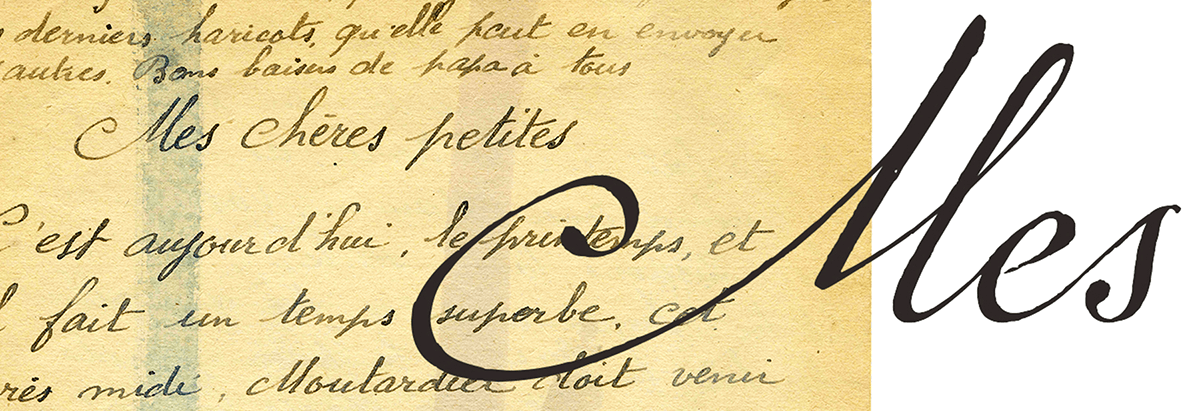 derniers haricots, qu'elle peut en envoyer
autres. Bons baisers de papa à tous
Mes chères petites
C'est aujourd'hui, le printemps, et
fait un temps superbe, cet
rés midi, Moutardier doit venir
Mes